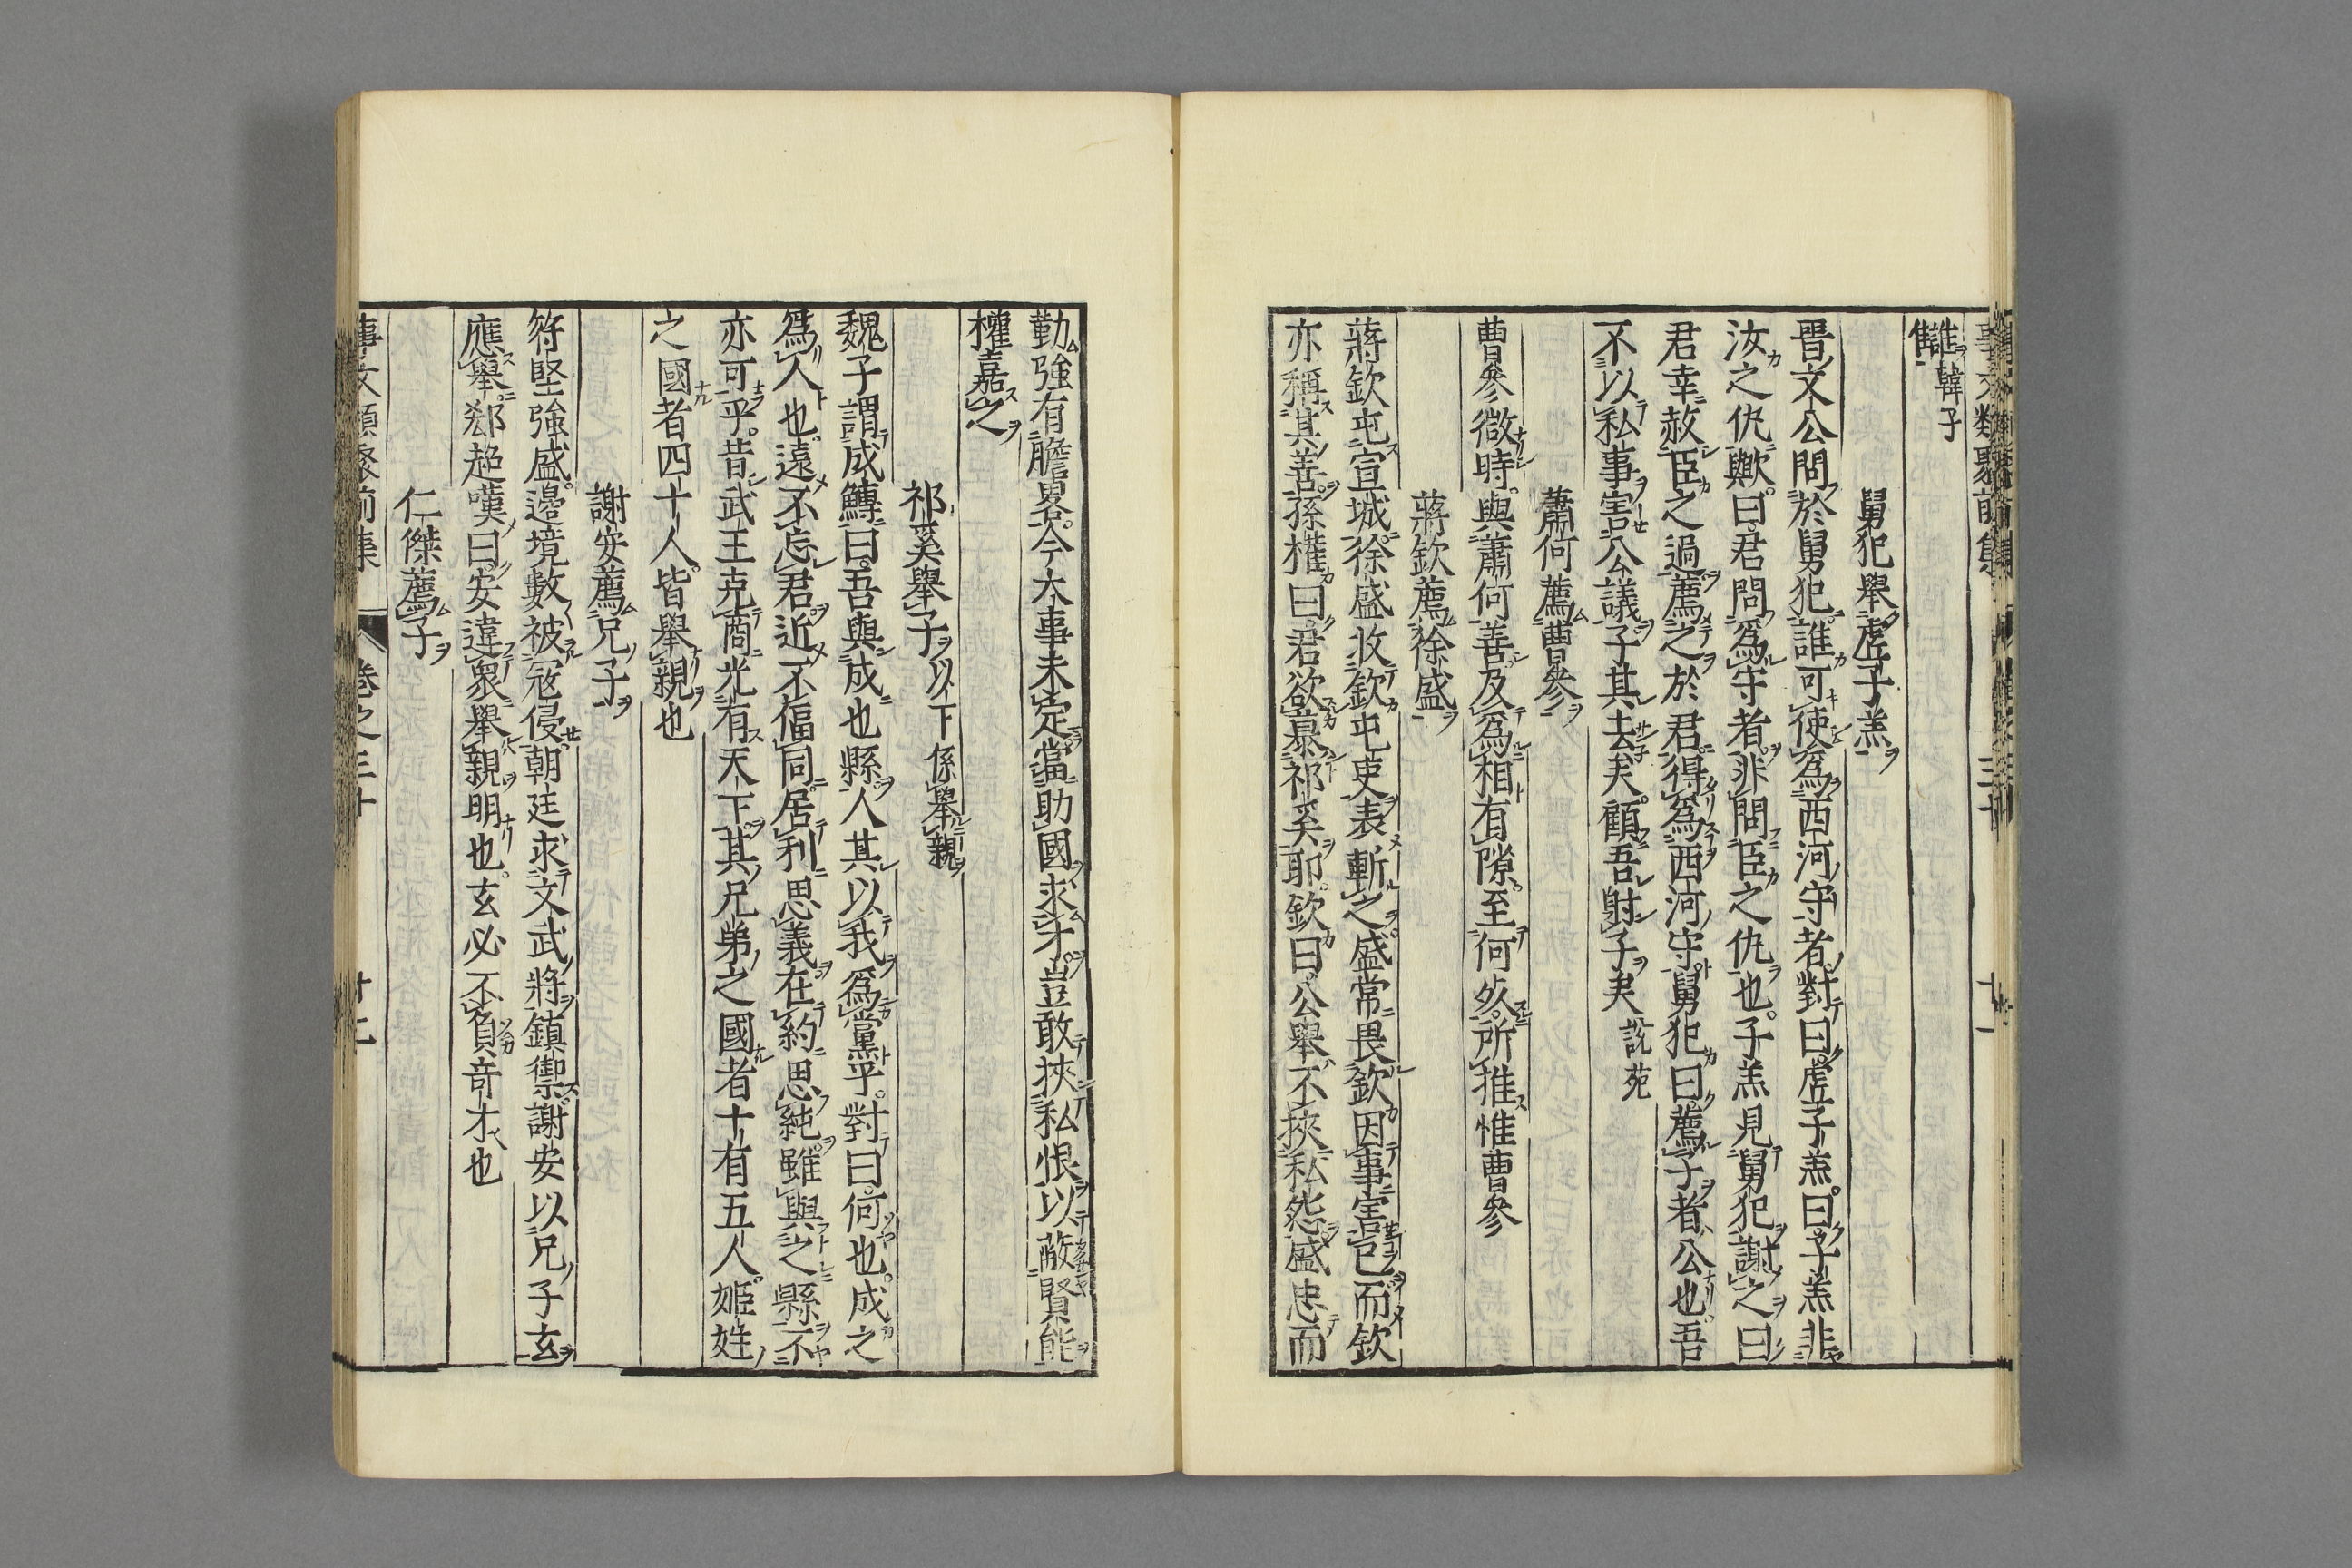 事文類聚前集 三十 十一
讎韓子
舅犯舉虗子羔
晋文公問於舅犯誰可使爲西河守者對曰虗子羔曰子羔非
汝之仇歟曰君問爲守者非問臣之仇也子羔見舅犯謝之曰
君幸赦臣之過薦之於君得爲西河守舅犯曰薦子者公也吾
不以私事害公議子其去矣顧吾射子矣 說苑
蕭何薦曹參
曹參微時與蕭何善及爲相有隙至何歿所推惟曹參
蔣欽薦徐盛
蔣欽屯宣城徐盛收欽屯吏表斬之盛常畏欽因事害已而欽
亦稱其善孫權曰君欲慕祁奚耶欽曰公舉不挾私怨盛忠而
勤強有膽畧今大事未定當助國求才豈敢挾私恨以蔽賢能
權嘉之
祁奚舉子 以下係舉親
魏子謂成鱄曰吾與成也縣人其以我爲黨乎對曰何也成之
爲人也遠不忘君近不偪同居利思義在約思純雖與之縣不
亦可乎昔武王克商光有天下其兄弟之國者十有五人姬姓
之國者四十人皆舉親也
謝安薦兄子
符堅強盛邉境數被冦侵朝廷求文武將鎮禦謝安以兄子玄
應舉郄超嘆曰安違衆舉親明也玄必不負竒才也
仁傑薦子
事文類聚前集 卷之三十 十二